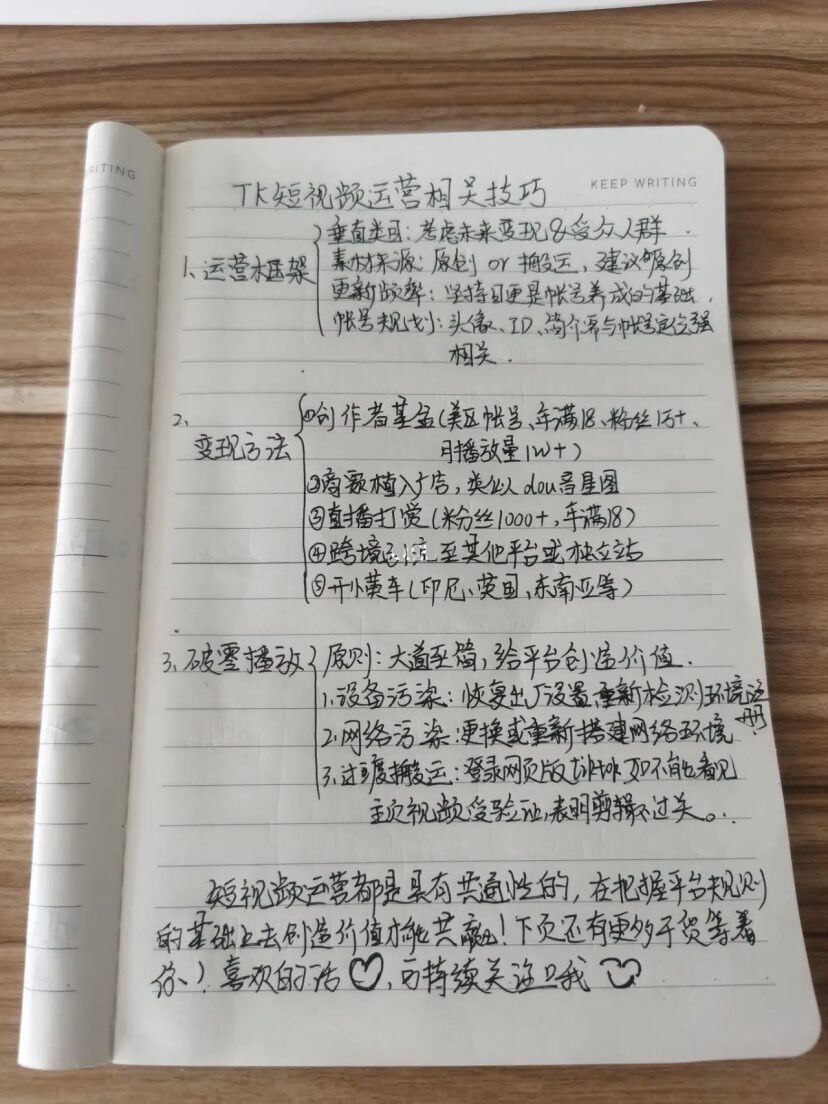 RITING
KEEP WRITING
TK短视频运营相关技巧
1、运营框架
垂直类目:考虑未来变现&受众人群.
素材来源:原创 or 搬运,建议原创
更新频率:坚持日更是帐号养成的基础.
帐号规划:头像、ID、简介需与帐号定位强
相关.
2、
变现方法
①创作者基金(美区帐号、年满18、粉丝1万+、
月播放量1W+)
②商务植入广告,类似dou音星图
③直播打赏(粉丝1000+,年满18)
④跨境引流至其他平台或独立站
⑤开小黄车(印尼、英国,东南亚等)
3、破零播放
原则:大道至简,给平台创造价值.
1.设备污染:恢复出厂设置,重新检测环境注
册.
2.网络污染:更换或重新搭建网络环境
3.过度搬运:登录网页版tiktok,如不能看见
主页视频受验证,表明剪辑不过关。
短视频运营都是具有共通性的,在把握平台规则
的基础上去创造价值才能共赢!下页还有更多干货等着
你、!喜欢的话♡,可持续关注我